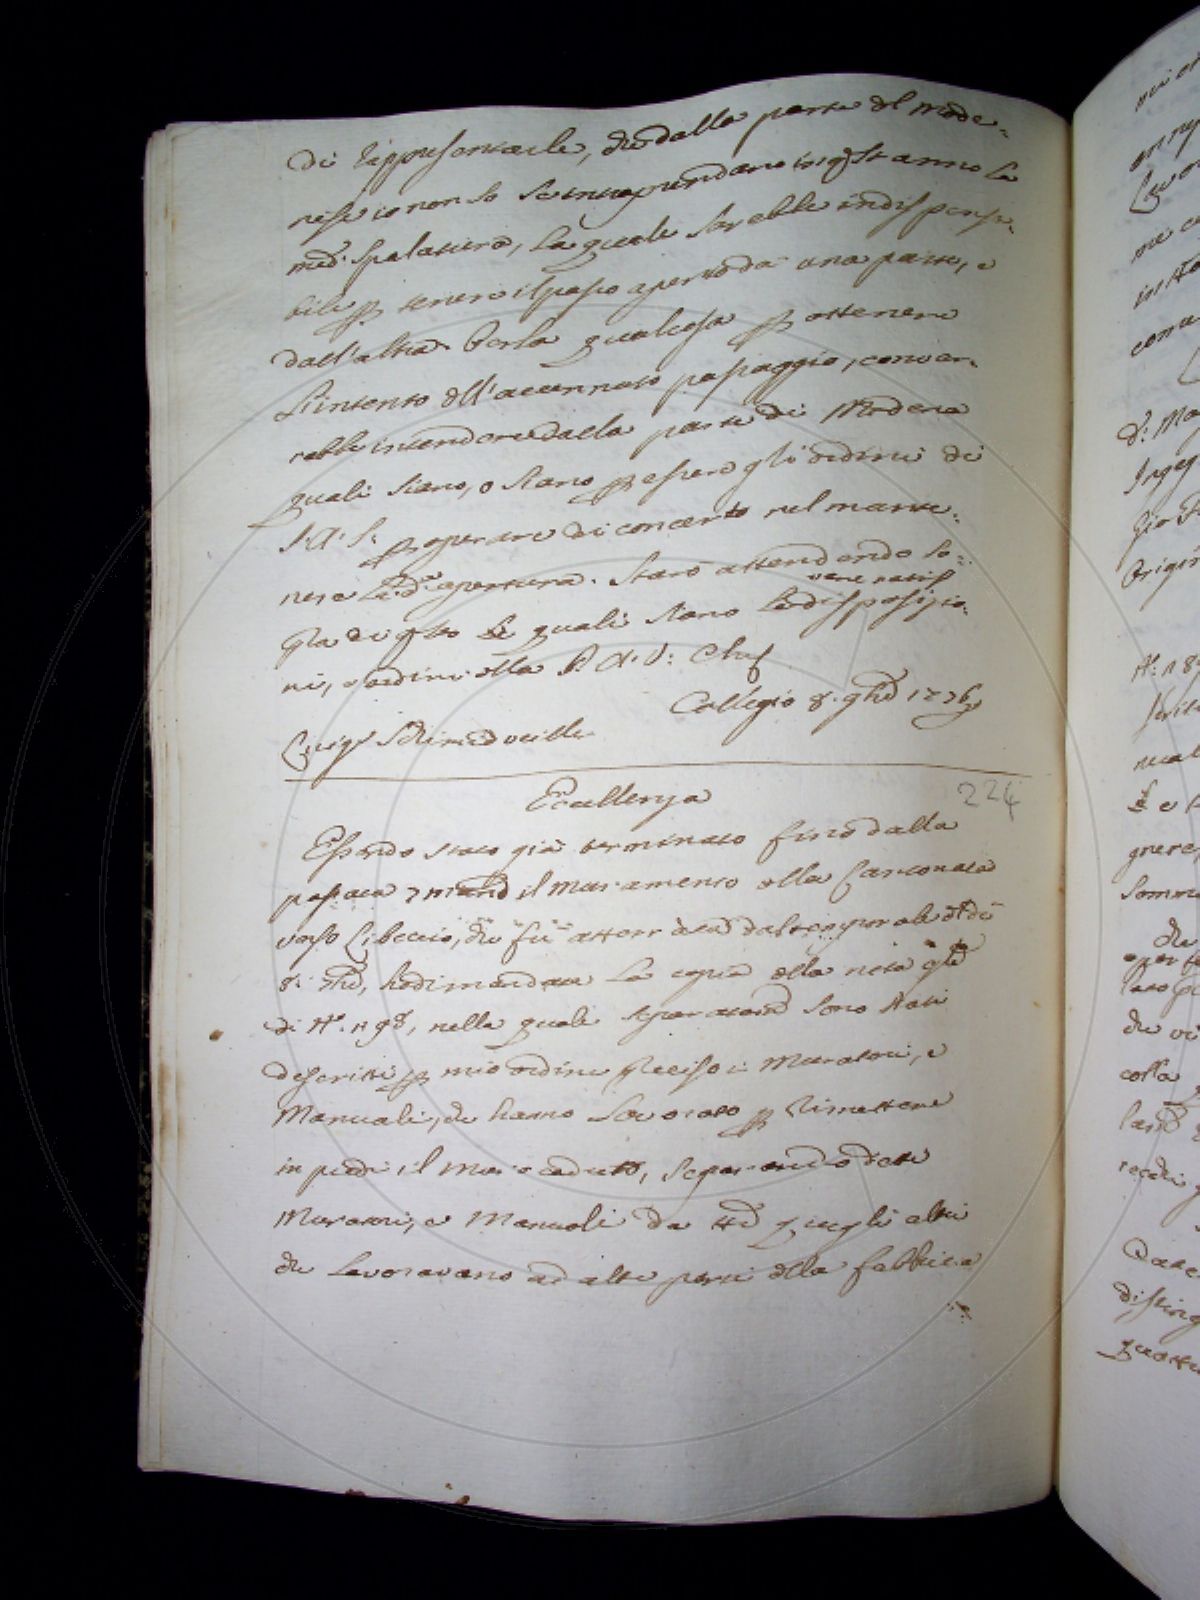 di rappresentarle, che dalla parte del Mode-
nese io non so se intraprendano in qst'anno la
med. spalatura, la quale sarebbe indispensa-
bile p tenere il passo aperto da una parte, e
dall'altra. Per la qualcosa p ottenere
l'intento dell'accennato passaggio, conver-
rebbe intendere dalla parte di Modena
quali siano, o siano p essere gli ordini di
S. A. S. p operare di concerto nel mante-
nere la d.a apertura. Starò attendendo so-
pra di qsto quali siano le disposizio-
veneratis.e
ni, e ordini della P. A. V. Che
Collegio 8. 9bre 1776
Luigi
Eccellenza
224
Essendo stato già terminato fino dalla
passata il muramento della Cantonata
verso Libeccio, che fu atterrata dal temporale del dì
8. , ho dimandato la copia della nota
di N. , nella quale separatam sono stati
descritti p mio ordine preciso i Muratori, e
Manuali, che hanno lavorato p rimettere
in piedi il muro caduto, separando detti
Muratori, e Manuali da quegli altri
che lavoravano ad altre parti della fabbrica